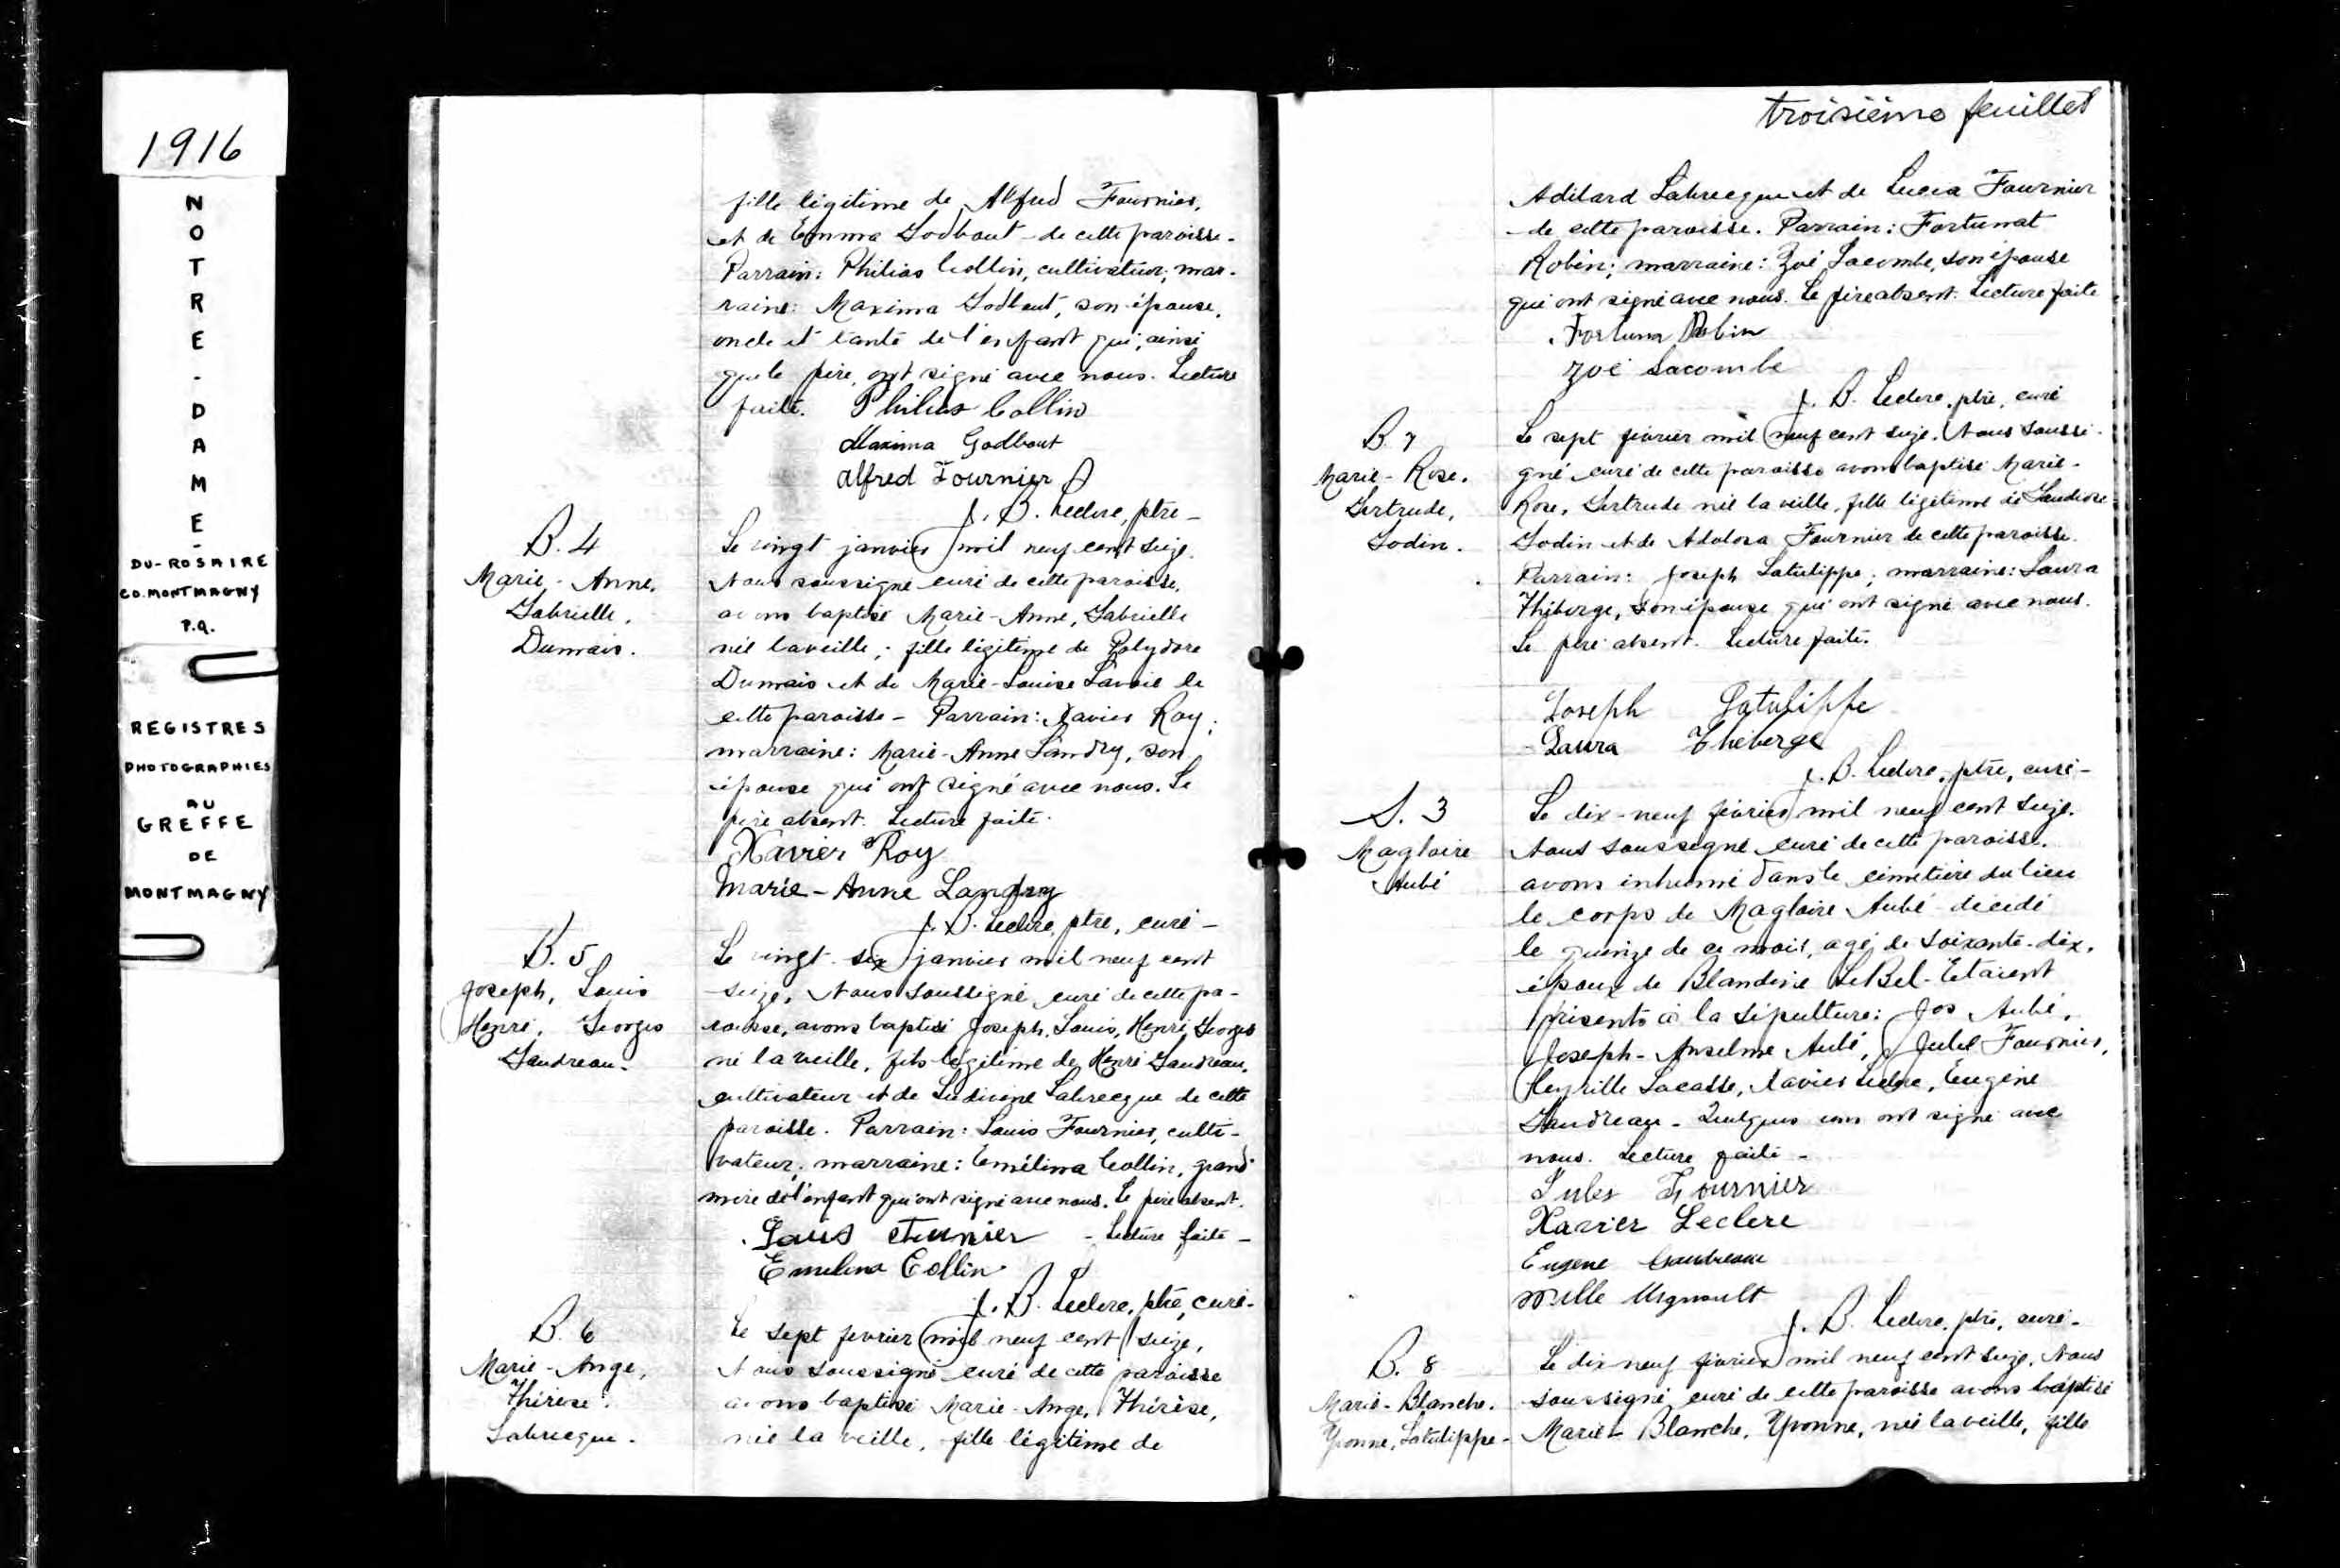 1916
NOTRE-DAME-
DU-ROSAIRE
CO. MONTMAGNY
P.Q.
REGISTRES
PHOTOGRAPHIES
AU
GREFFE
DE
MONTMAGNY
fille légitime de Alfred Fournier,
et de Emma Godbout de cette paroisse.
Parrain: Philias Collin, cultivateur; mar-
raine: Maxima Godbout, son épouse,
oncle et tante de l'enfant qui, ainsi
que le père, ont signé avec nous. Lecture
faite. Philias Collin
Maxima Godbout
Alfred Fournier
J. B. Leclerc, ptre
B. 4
Marie-Anne,
Gabrielle,
Dumais.
Le vingt janvier mil neuf cent seize.
Nous soussigné curé de cette paroisse,
avons baptisé Marie-Anne, Gabrielle
née la veille, fille légitime de Polydore
Dumais et de Marie-Louise Lavoie de
cette paroisse - Parrain: Xavier Roy;
marraine: Marie-Anne Landry, son
épouse qui ont signé avec nous. Le
père absent. Lecture faite.
Xavier Roy
Marie-Anne Landry
J. B. Leclerc, ptre, curé-
B. 5
Joseph, Louis
Henri, Georges
Gaudreau.
Le vingt-six janvier mil neuf cent
seize, Nous soussigné curé de cette pa-
roisse, avons baptisé Joseph, Louis, Henri, Georges
né la veille, fils légitime de Henri Gaudreau,
cultivateur et de Ludivine Labrecque de cette
paroisse. Parrain: Louis Fournier, culti-
vateur; marraine: Emélina Collin, grand'
mère de l'enfant qui ont signé avec nous. Le père absent.
Louis - Lecture faite -
Emelina Collin
J. B. Leclerc, ptre, curé-
B. 6
Marie-Ange,
Thérèse.
Labrecque.
Le sept février mil neuf cent seize,
Nous soussigné curé de cette paroisse
avons baptisé Marie-Ange, Thérèse,
née la veille, fille légitime de
troisième feuillet
Adélard Labrecque et de Lucia Fournier
de cette paroisse. Parrain: Fortunat
Robin; marraine: Zoé Lacombe, son épouse
qui ont signé avec nous. Le père absent. Lecture faite
Fortuna Robin
Zoé Lacombe
J. B. Leclerc, ptre, curé
B. 7
Marie-Rose,
Gertrude,
Godin.
Le sept février mil neuf cent seize. Nous soussi-
gné curé de cette paroisse avons baptisé Marie-
Rose, Gertrude née la veille, fille légitime de Gaudiose
Godin et de Fournier de cette paroisse.
Parrain: Joseph Latulippe; marraine: Laura
Théberge, son épouse qui ont signé avec nous.
Le père absent. Lecture faite.
Joseph Latulippe
Laura Théberge
J. B. Leclerc, ptre, curé-
S. 3
Magloire
Aubé
Le dix-neuf février mil neuf cent seize.
Nous soussigné curé de cette paroisse.
avons inhumé dans le cimetière du lieu
le corps de Magloire Aubé décédé
le quinze de ce mois, agé de soixante-dix,
époux de Blandine LeBel. Etaient
présents à la sépulture: Jos Aubé,
Joseph-Anselme Aubé, Jules Fournier,
Lacasse, Xavier Leclerc, Eugène
Gaudreau - Quelques uns ont signé avec
nous. Lecture faite -
Jules Fournier
Xavier Leclerc
Eugene Gaudreau
J. B. Leclerc, ptre, curé-
B. 8
Marie-Blanche.
Yvonne, Latulippe-
Le dix neuf février mil neuf cent seize, Nous
soussigné curé de cette paroisse avons baptisé
Marie-Blanche, Yvonne, née la veille, fille